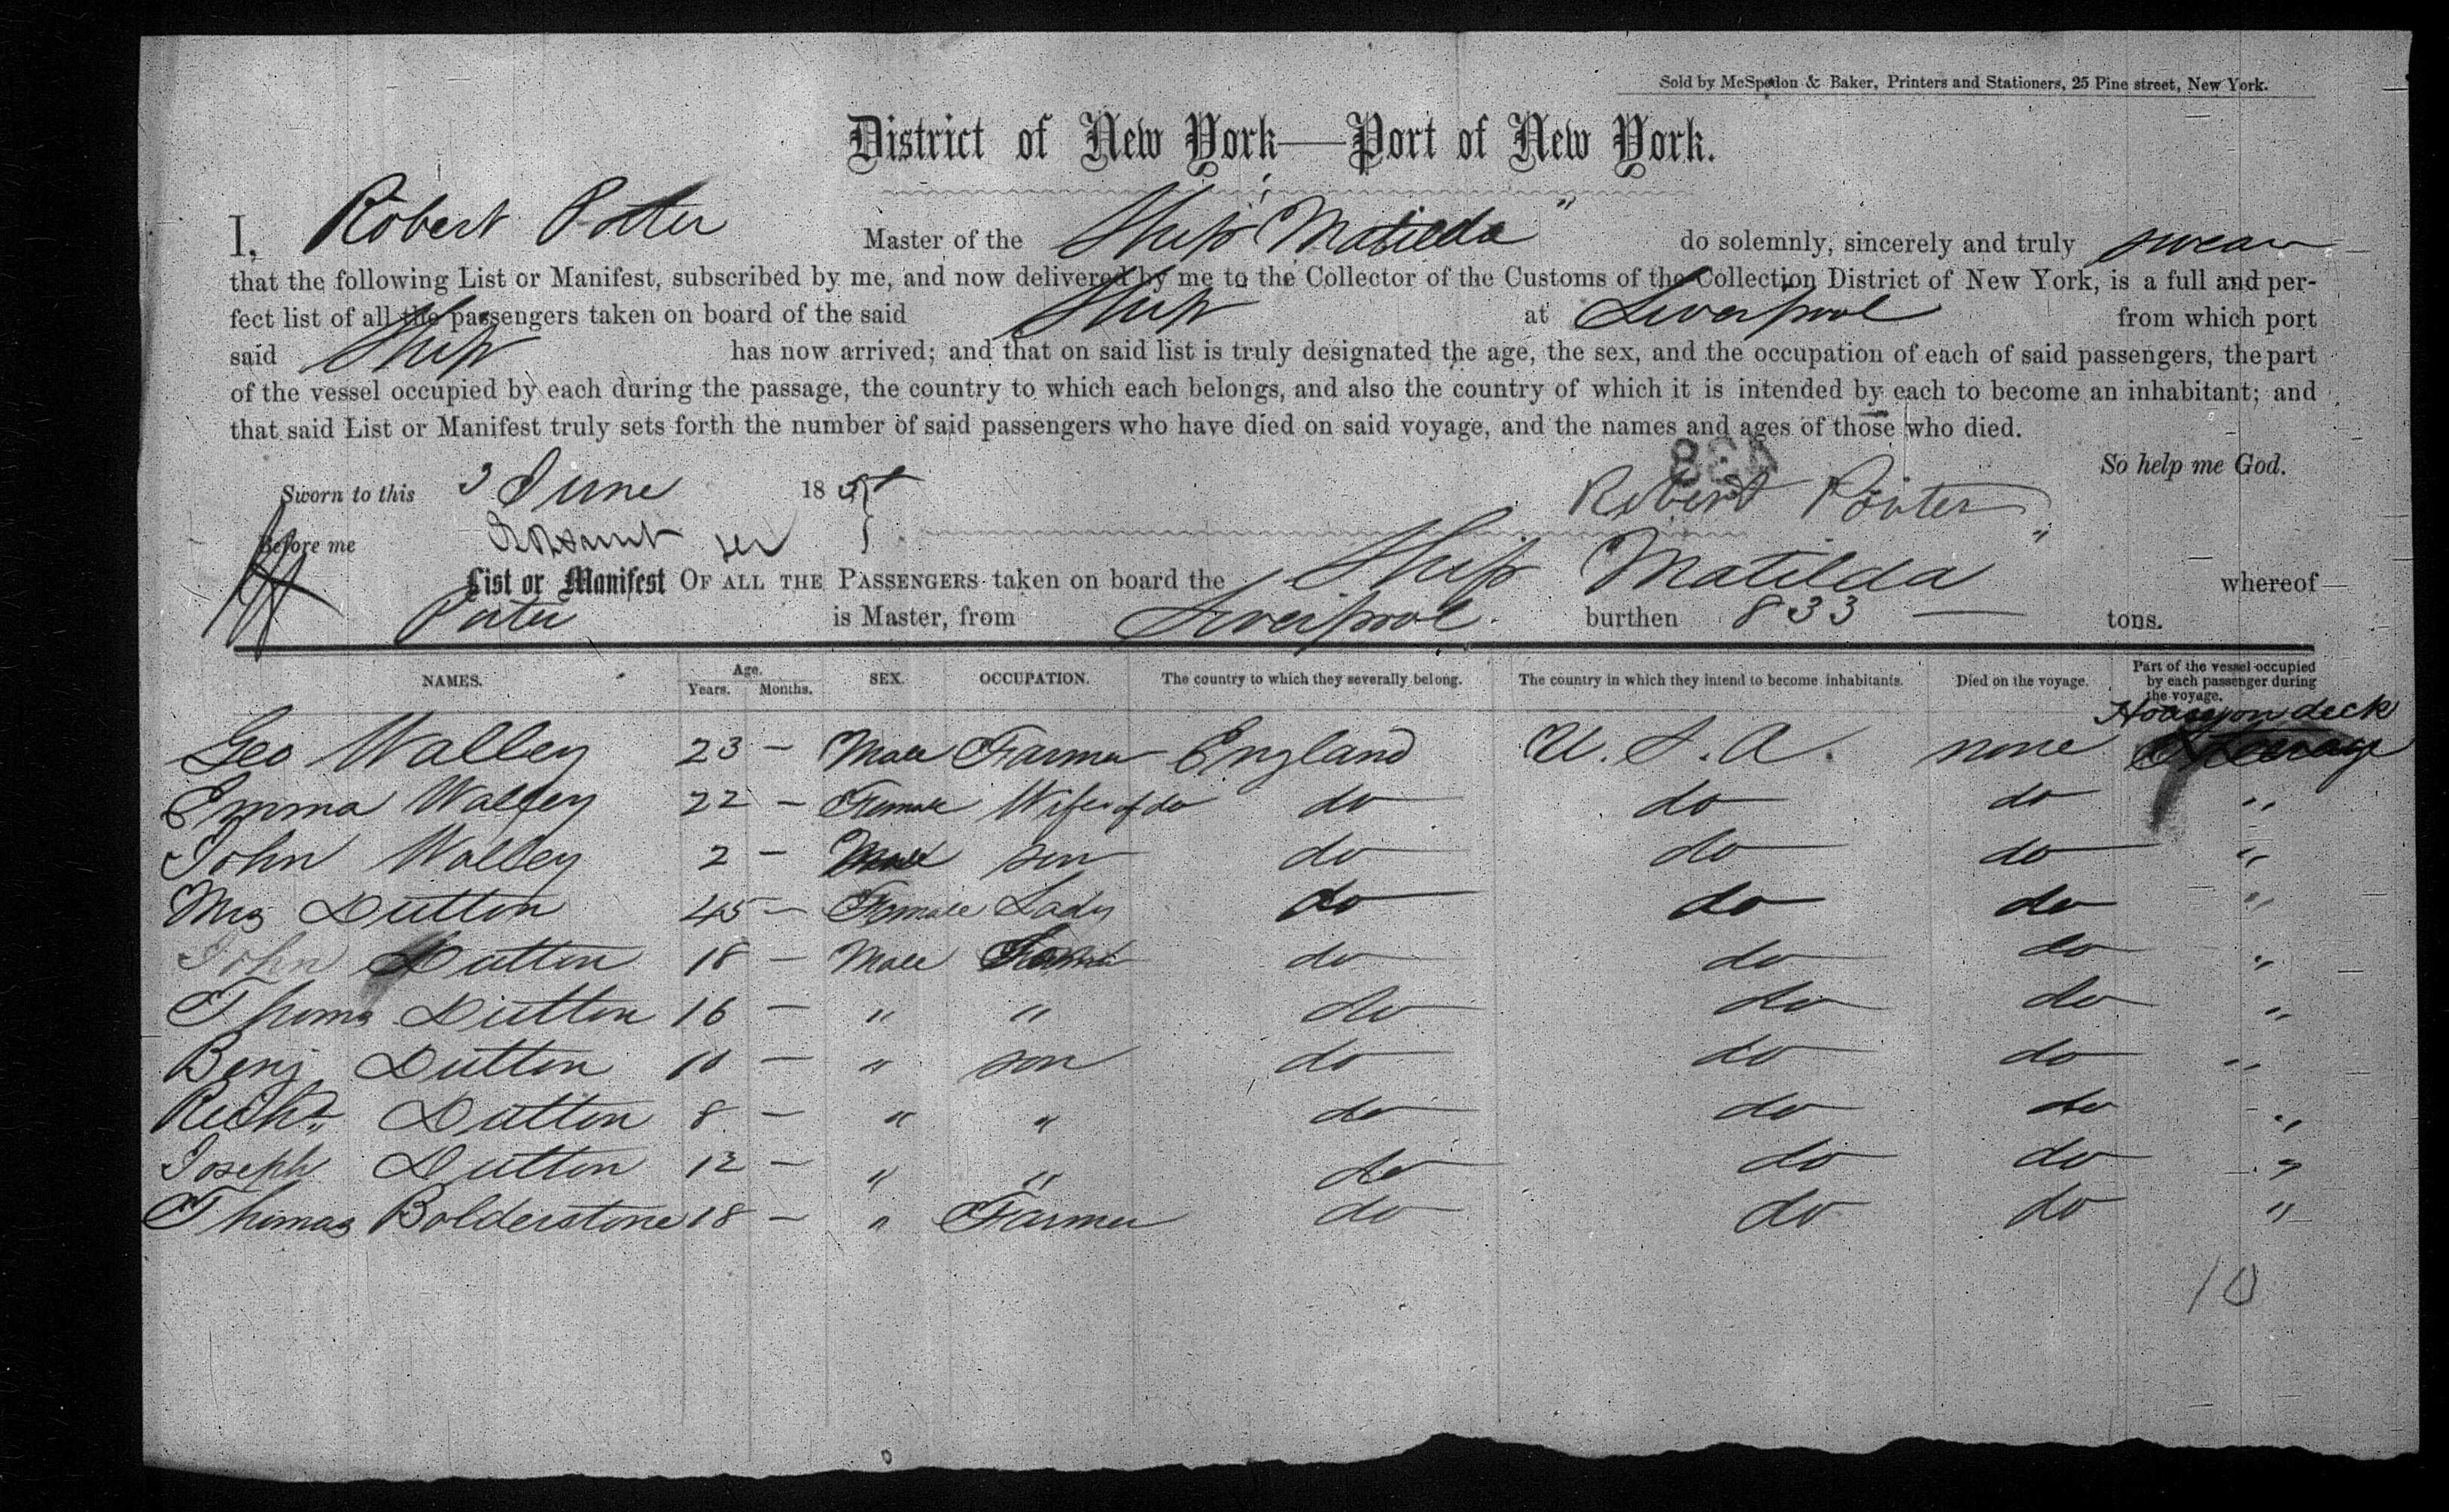 Sold by McSpedon & Baker, Printers and Stationers, 25 Pine street, New York.
District of New York—Port of New York.
I, Robert Porter Master of the Ship "Matilda" do solemnly, sincerely and truly swear
that the following List or Manifest, subscribed by me, and now delivered by me to the Collector of the Customs of the Collection District of New York, is a full and per-
fect list of all the passengers taken on board of the said Ship at Liverpool from which port
said Ship has now arrived; and that on said list is truly designated the age, the sex, and the occupation of each of said passengers, the part
of the vessel occupied by each during the passage, the country to which each belongs, and also the country of which it is intended by each to become an inhabitant; and
that said List or Manifest truly sets forth the number of said passengers who have died on said voyage, and the names and ages of those who died.
So help me God.
Sworn to this 3 June 18
Robert Porter
Before me
List or Manifest OF ALL THE PASSENGERS taken on board the Ship Matilda" whereof
Porter is Master, from Liverpool. burthen 833 — tons.
NAMES. Age. Years. Months. SEX. OCCUPATION. The country to which they severally belong. The country in which they intend to become inhabitants. Died on the voyage. Part of the vessel occupied by each passenger during the voyage.
House on deck
Geo Walley 23 — Male Farmer England U. S. A. none Steerage
Emma Walley 22 — Female Wife of do do do do "
John Walley 2 — Male son do do do "
Mrs Dutton 45 — Female Lady do do do "
John Dutton 18 — Male Farmer do do do "
Thoms Dutton 16 — " " do do do "
Benj Dutton 10 — " son do do do "
Richd Dutton 8 — " " do do do "
Joseph Dutton 12 — " " do do do "
Thomas Bolderstone 18 — " Farmer do do do "
10